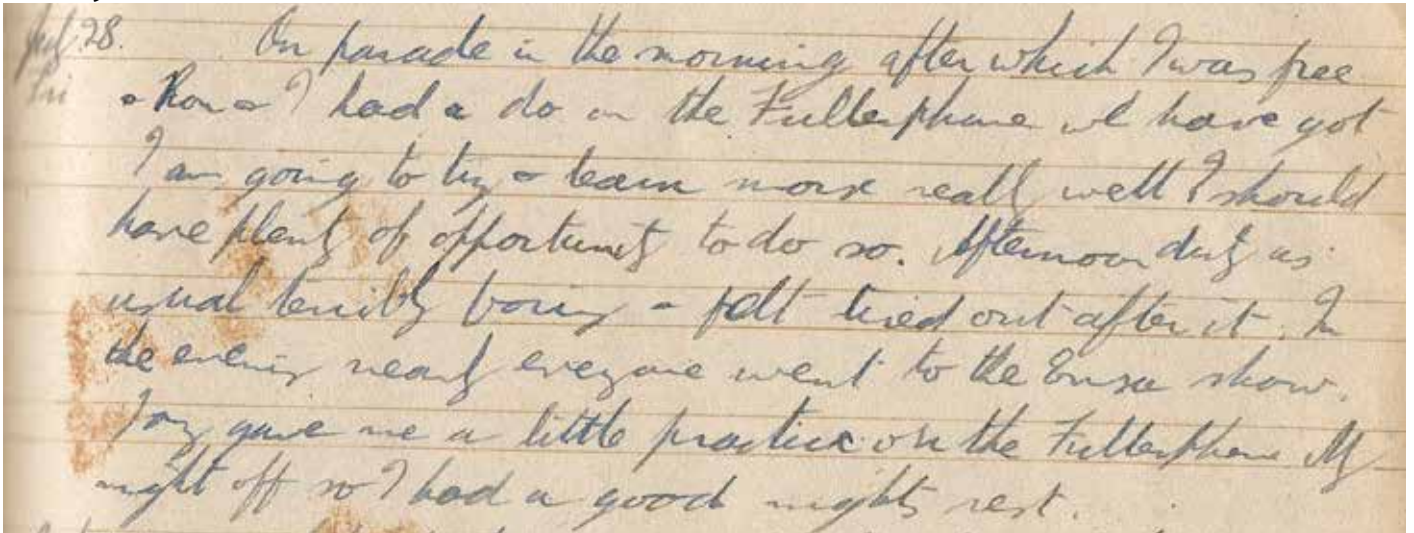 July 28. On parade in the morning after which I was free
Fri & Ron & I had a do on the Fullerphone we have got
I am going to try & learn morse really well I should
have plenty of opportunity to do so. Afternoon duty as
usual terribly boring & felt tired out after it. In
the evening nearly everyone went to the Ensa show.
gave me a little practice on the Fullerphone My
night off so I had a good nights rest.